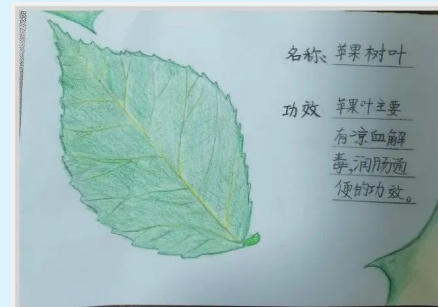 名称、苹果树叶
功效 苹果叶主要
有凉血解
毒,润肠通
便的功效。